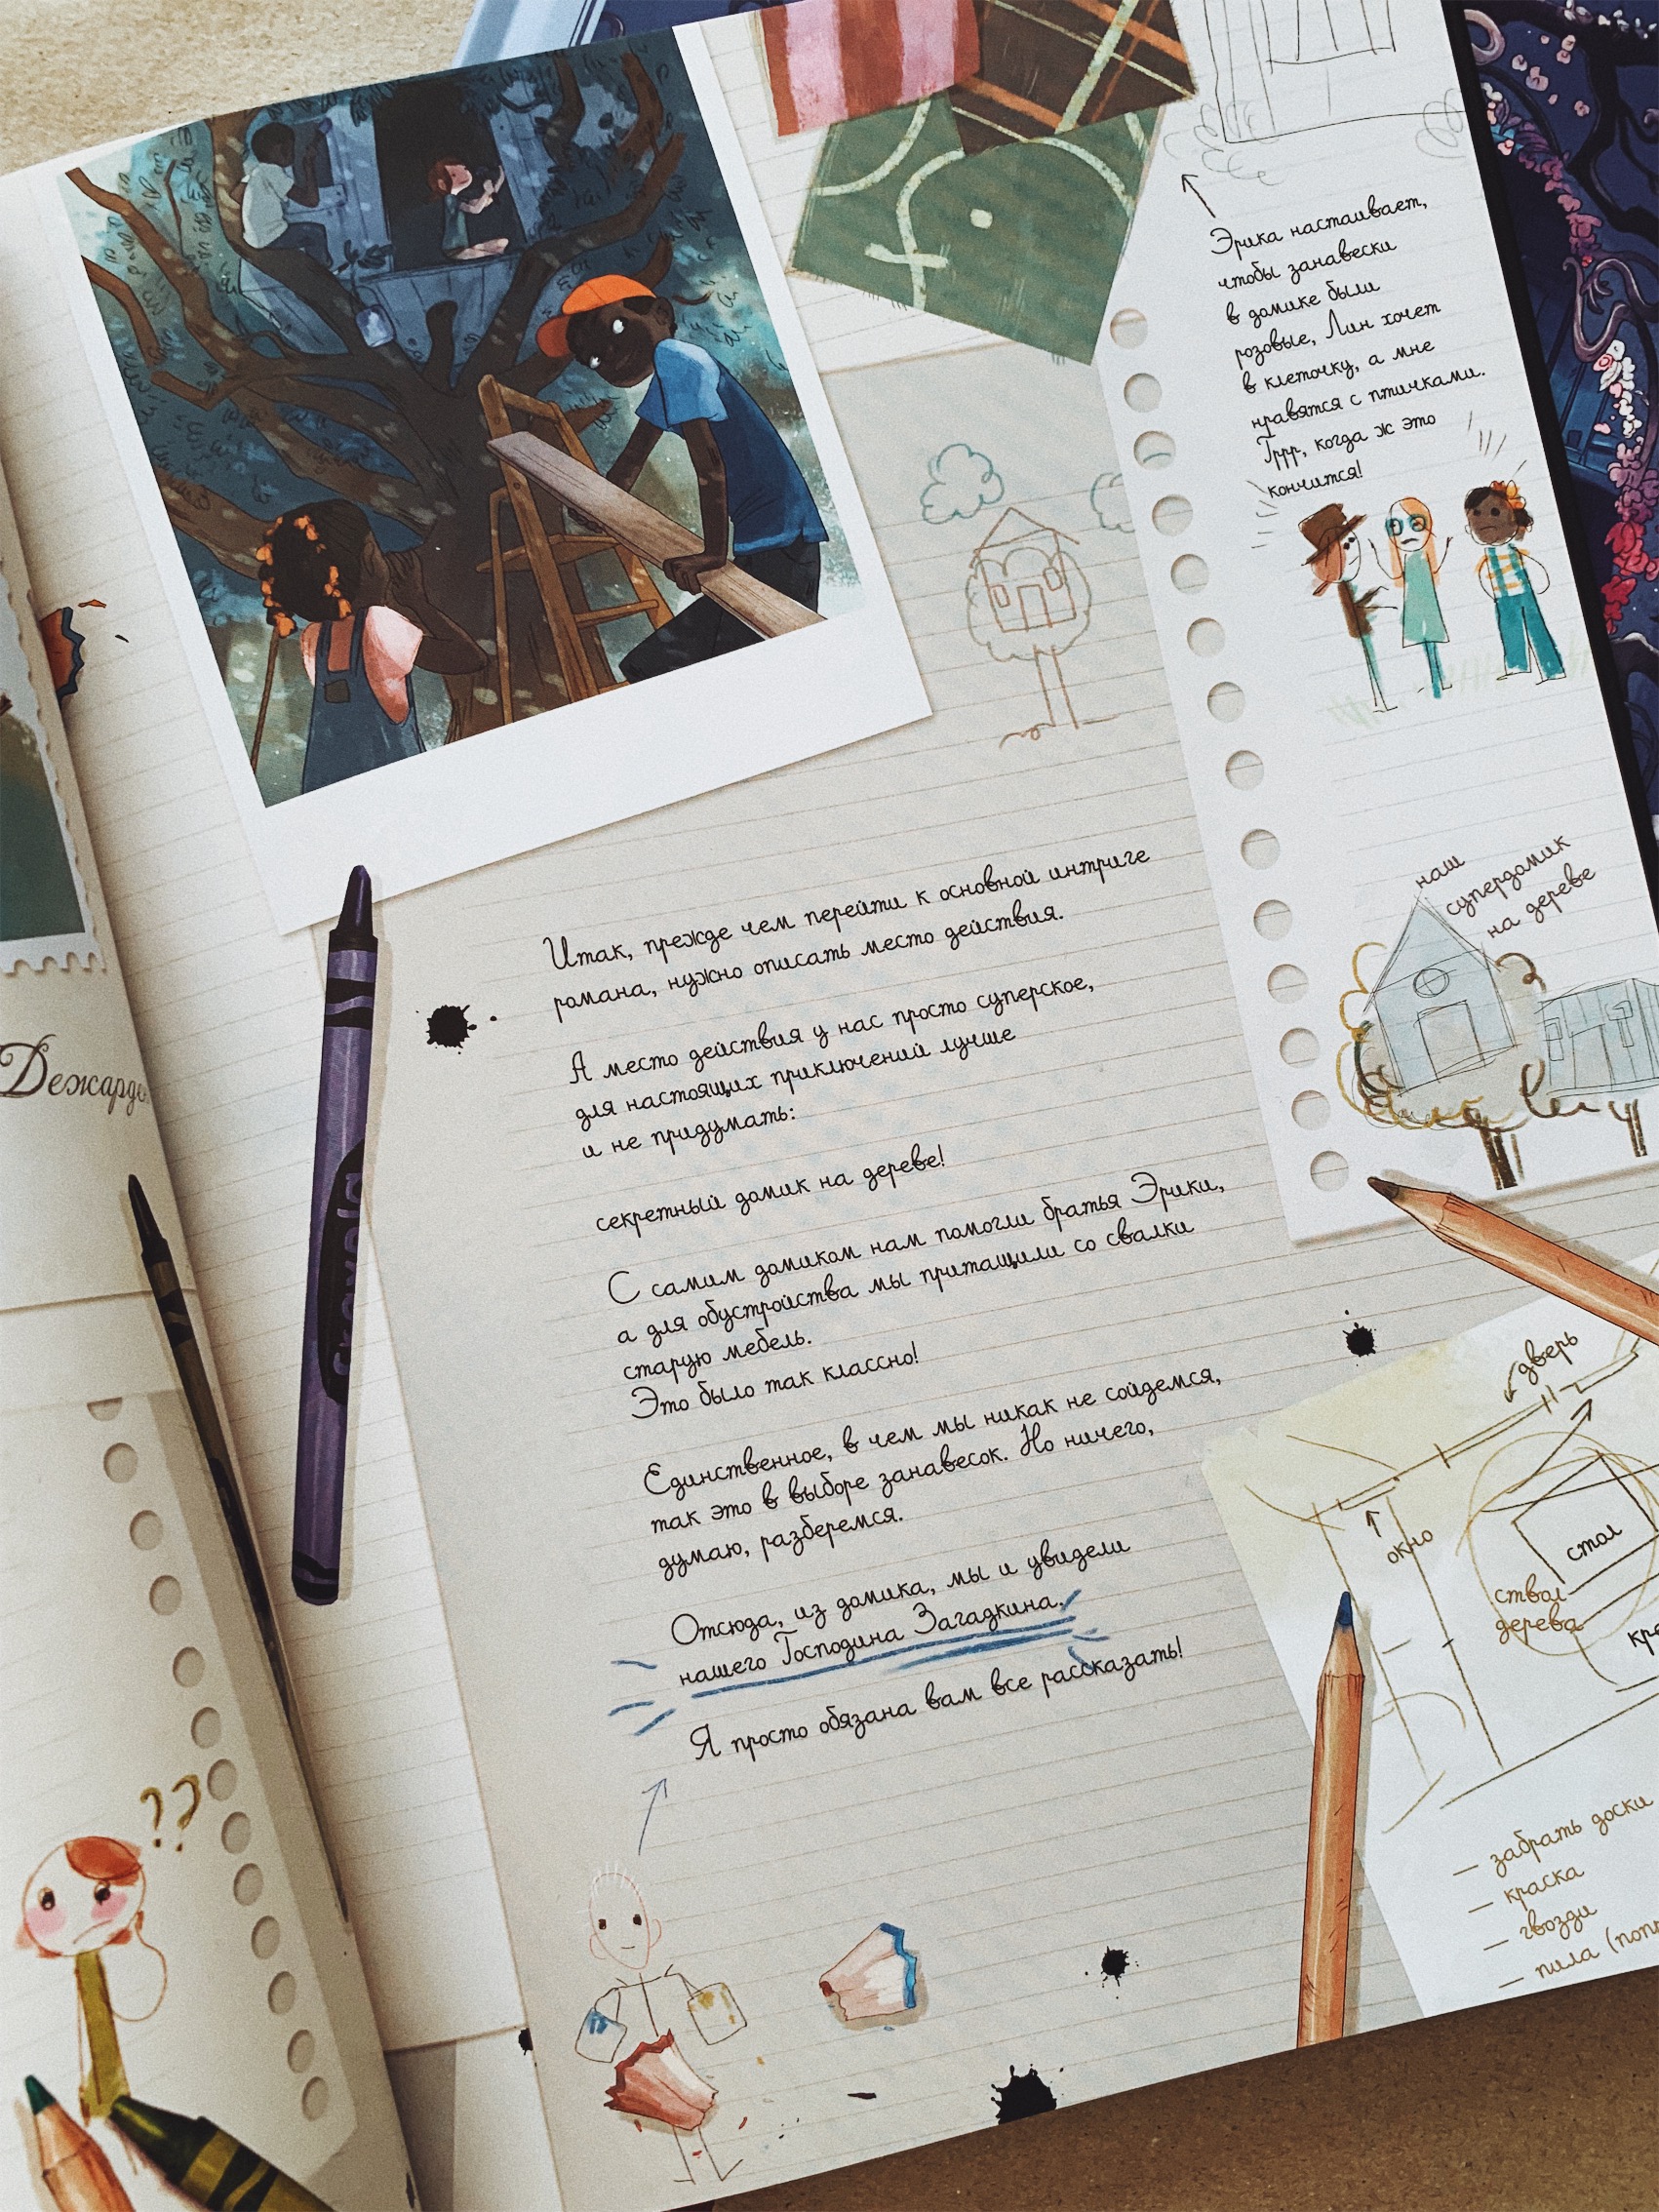 Эрика настаивает,
чтобы занавески
в домике были
розовые, Лин хочет
в клеточку, а мне
нравятся с птичками.
Гррр, когда ж это
кончится!
наш
супердомик
на дереве
Итак, прежде чем перейти к основной интриге
романа, нужно описать место действия.
А место действия у нас просто суперское,
для настоящих приключений лучше
и не придумать:
секретный домик на дереве!
С самим домиком нам помогли братья Эрики,
а для обустройства мы притащили со свалки
старую мебель.
Это было так классно!
Единственное, в чем мы никак не сойдемся,
так это в выборе занавесок. Но ничего,
думаю, разберемся.
Отсюда, из домика, мы и увидели
нашего Господина Загадкина.
Я просто обязана вам все рассказать!
дверь
окно
стол
ствол
дерева
— забрать доски
— краска
— гвозди
— пила
??